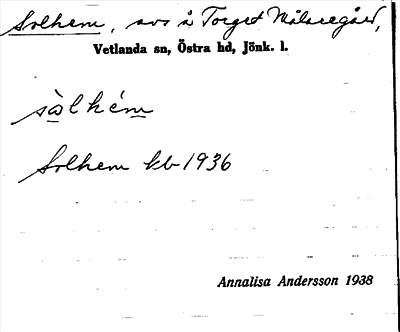 Solhem, avs å Torget Målaregård,
Vetlanda sn, Östra hd, Jönk. l.
sò̀lhém
Solhem kb 1936
Annalisa Andersson 1938